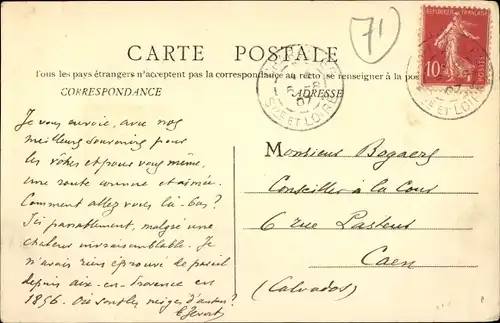 71
CARTE POSTALE
Tous les pays étrangers n'acceptent pas la correspondance au recto se renseigner à la pos
CORRESPONDANCE
ADRESSE
REPUBLIQUE FRANÇAISE
10c
POSTES
SNE ET LOIRE
07
Je vous envoie, avec nos
meilleurs souvenirs pour
les vôtres et pour vous même,
une route connue et aimée.
Comment allez vous là-bas?
Ici parfaitement, malgré une
chaleur invraisemblable. Je
n'avais rien éprouvé de pareil
depuis aix-en-Provence en
1896. Où sont les neiges d'antan?
Monsieur Bogaers
Conseiller à la Cour
6 rue Pasteur
Caen
(Calvados)